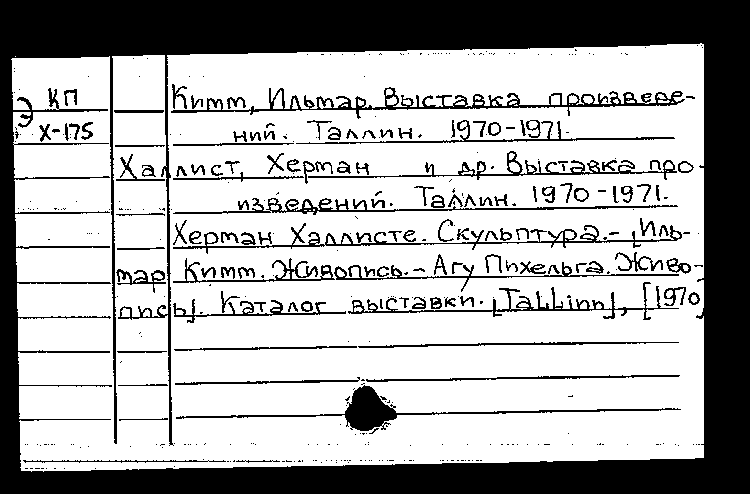 КП Кимм, Ильмар. Выставка произведе-
Э Х-175 ний. Таллин. 1970-1971.
Халлист, Херман и др. Выставка про-
изведений. Таллин. 1970-1971.
Херман Халлисте. Скульптура.- [Иль-
мар Кимм. Живопись.- Агу Пихельга. Живо-
пись]. Каталог выставки. [Tallinn], [1970]